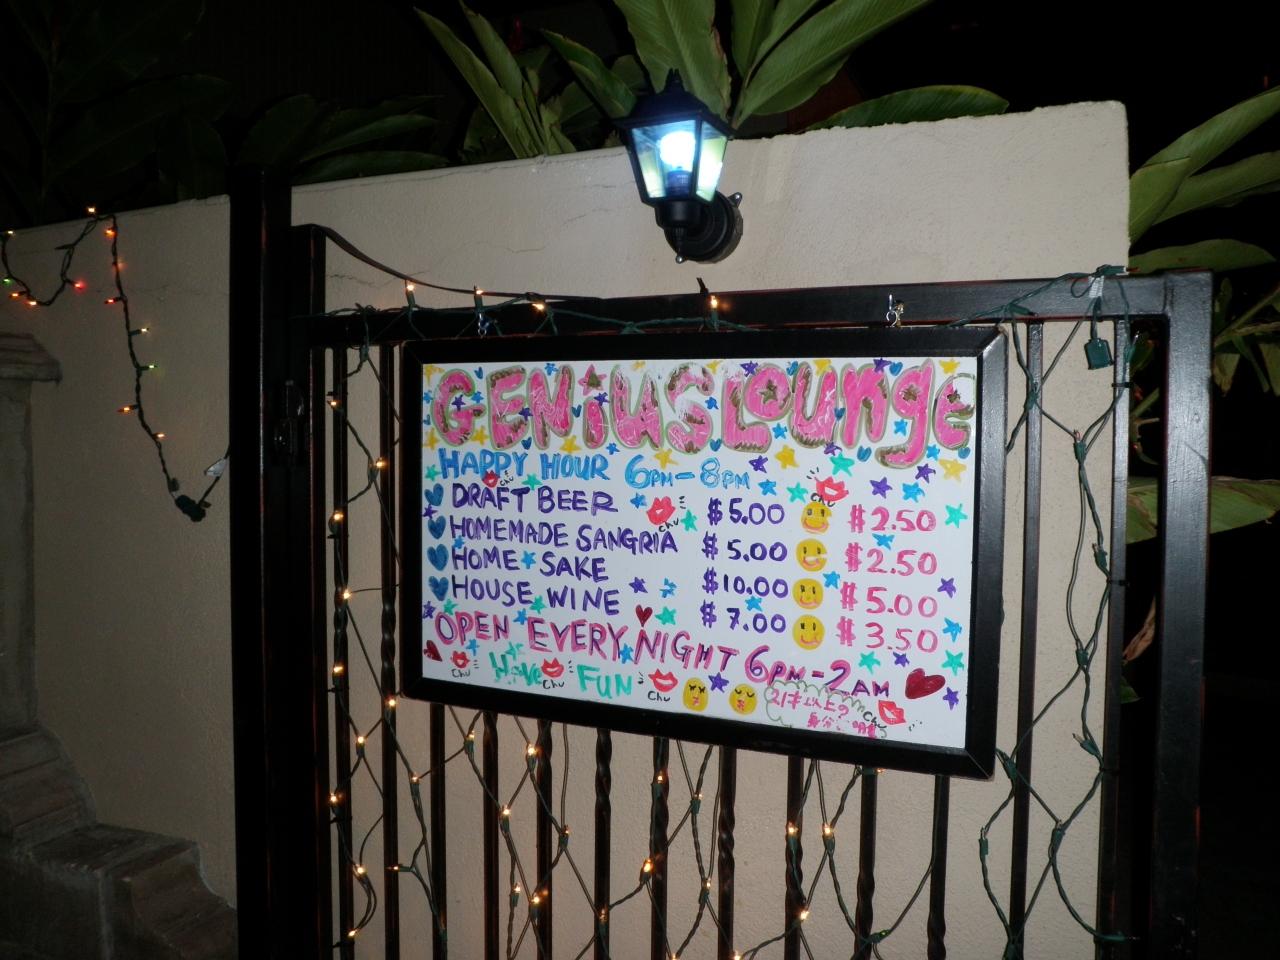 GENiUS LOUnge
HAPPY HOUR 6PM-8PM
DRAFT BEER $5.00 $2.50
HOMEMADE SANGRIA $5.00 $2.50
HOME SAKE $10.00 $5.00
HOUSE WINE $7.00 $3.50
OPEN EVERY NIGHT 6PM-2AM
Have FUN
chu
chu
chu
chu
chu
chu
chu
21才以上?